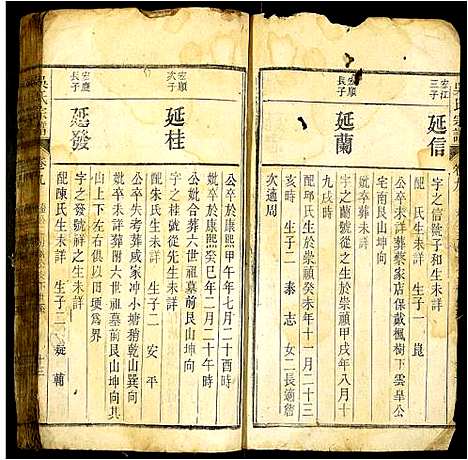 吳氏宗譜
卷九
宏江
三子
延信
字之信號子和生未詳
配 氏生未詳 生子一 崑
公卒未詳葬蔡家店保戴楓樹下雲皐公
宅南艮山坤向
宏順
長子
延蘭
字之蘭號從之生於崇禎甲戌年八月十
九戌時
妣卒葬未詳
配邱氏生於崇禎癸未年十一月二十三
亥時 生子二 泰 志 女二長適詹
次適周
公卒於康熙甲午年七月二十酉時
妣卒於康熙癸巳年二月二十午時
公妣合葬六世祖墓前艮山坤向
宏順
次子
延桂
字之桂號從先生未詳
配朱氏生未詳 生子二 安 平
公卒失考葬戚家冲小塘稍乾山巽向
妣卒未詳葬附六世祖墓前艮山坤向共
山上下左右俱以田埂為界
宏慶
長子
延發
字之發號祥之生未詳
配陳氏生未詳 生子二 輔
吳氏宗譜
卷九
十三